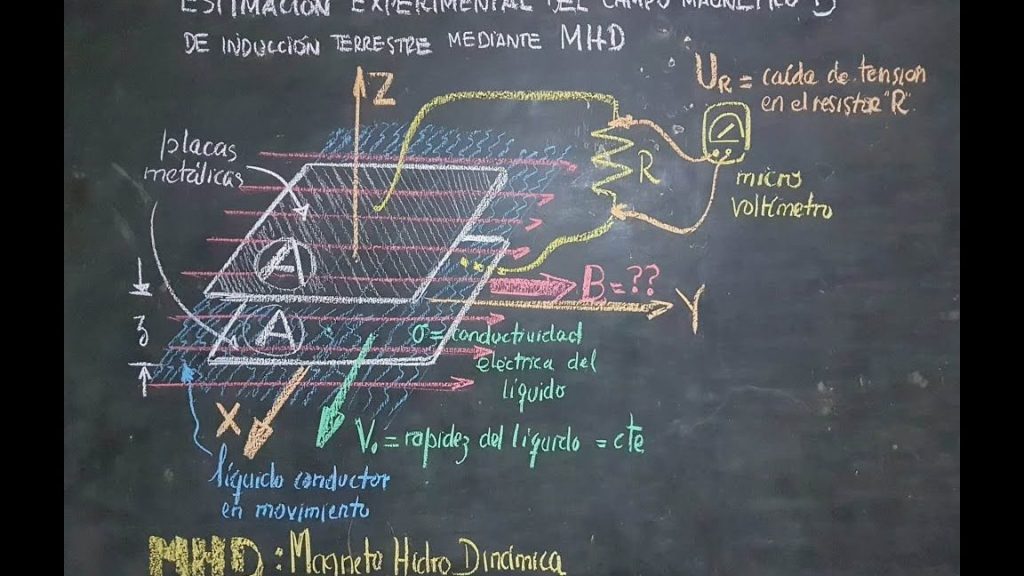 ESTIMACIÓN EXPERIMENTAL DEL CAMPO MAGNÉTICO B
DE INDUCCIÓN TERRESTRE MEDIANTE MHD
Z
U_R = caída de tension
en el resistor "R"
placas
metálicas
R
micro
voltímetro
A
B = ??
Y
A
z
σ = conductividad
eléctrica del
líquido
X
V₀ = rapidez del líquido = cte
líquido conductor
en movimiento
MHD : Magneto Hidro Dinámica